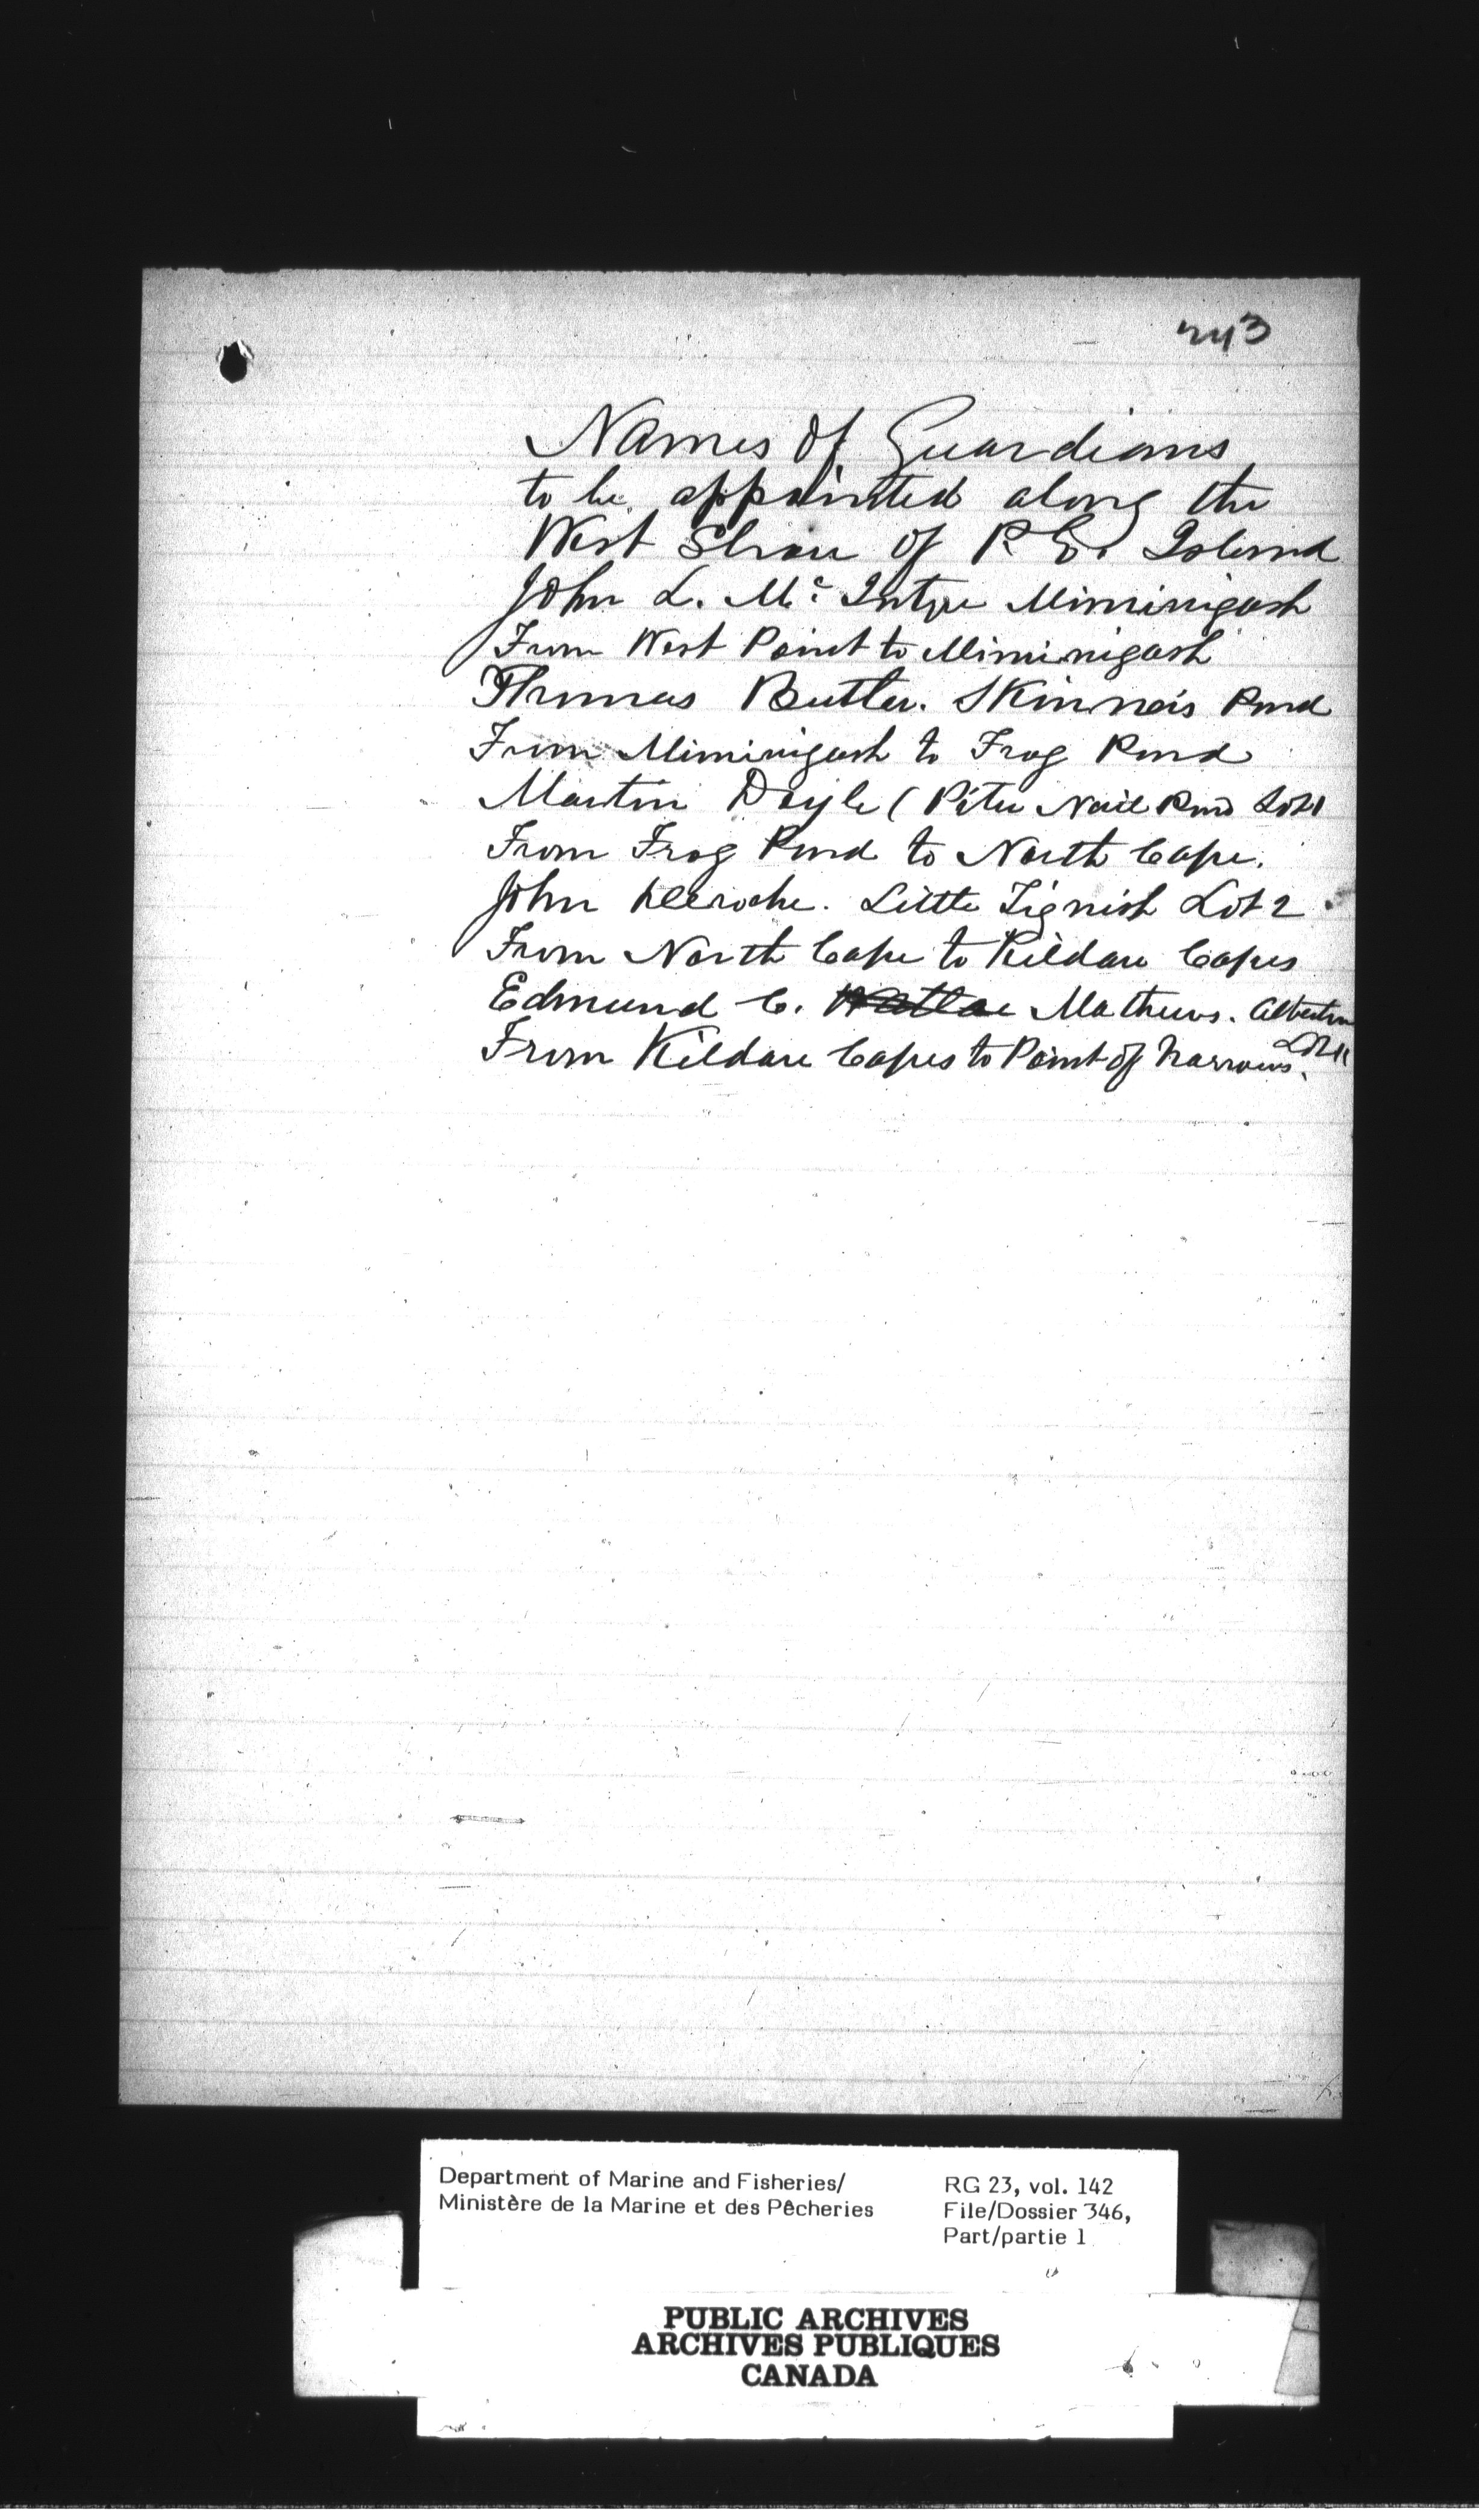 243
Names of Guardians
to be appointed along the
West Shore of P. E. Island
John L. Mc Intyre Miminigash
From West Point to Miminigash
Thomas Butler. Skinners Pond
From Miminigash to Frog Pond
Martin Doyle ( Peter Nail Pond Lot 1
From Frog Pond to North Cape.
John Deroche. Little Tignish Lot 2
From North Cape to Kildare Capes
Edmund C. Mathews. Alberton
Lot
From Kildare Capes to Point of Narrows.
Department of Marine and Fisheries/
Ministère de la Marine et des Pêcheries
RG 23, vol. 142
File/Dossier 346,
Part/partie 1
PUBLIC ARCHIVES
ARCHIVES PUBLIQUES
CANADA